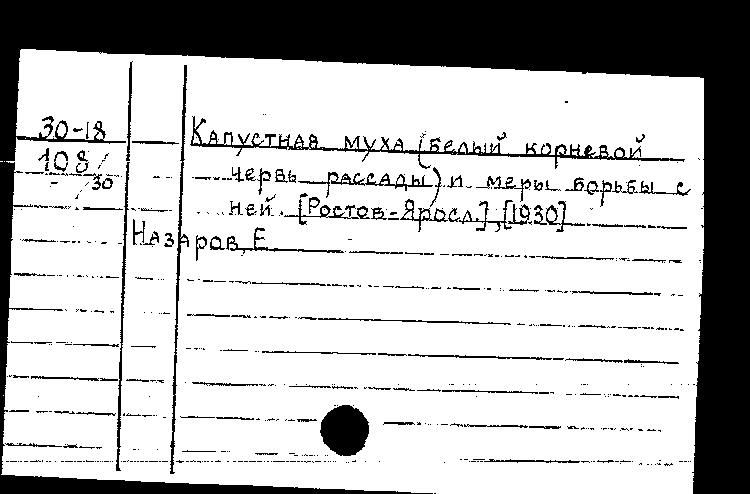 30-18
Капустная муха (белый корневой
108/
червь рассады) и меры борьбы с
- /30
ней. [Ростов-Яросл.], [1930]
Назаров, Е.